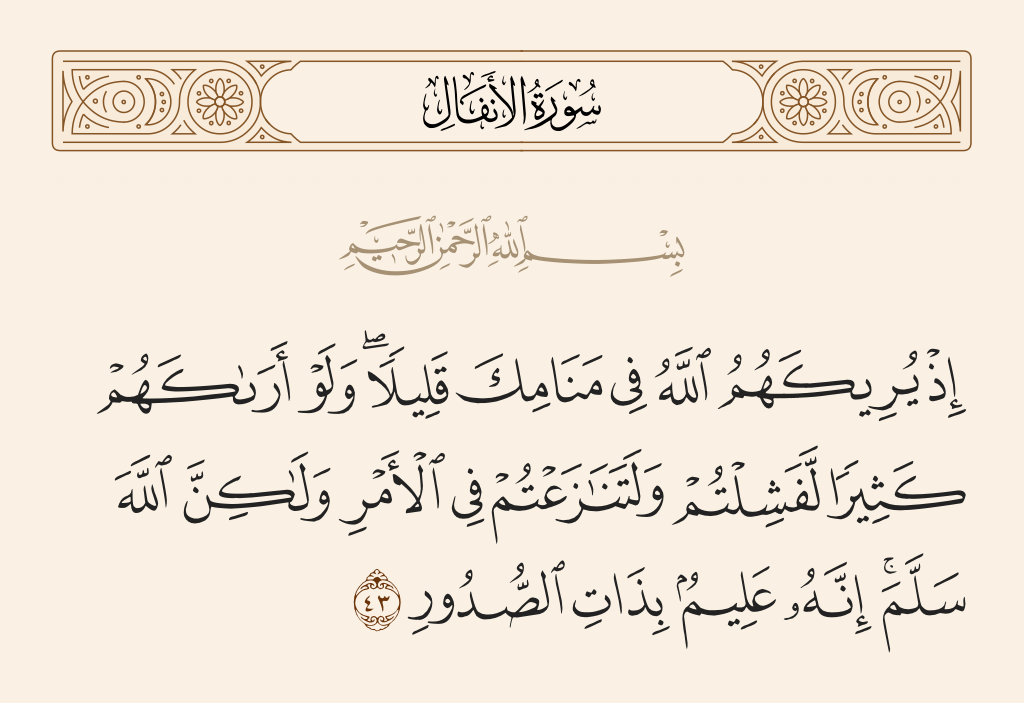 سُورَةُ الأَنفَالِ
بِسْمِ ٱللَّهِ ٱلرَّحْمَٰنِ ٱلرَّحِيمِ
إِذْ يُرِيكَهُمُ ٱللَّهُ فِى مَنَامِكَ قَلِيلًا ۖ وَلَوْ أَرَىٰكَهُمْ
كَثِيرًا لَّفَشِلْتُمْ وَلَتَنَٰزَعْتُمْ فِى ٱلْأَمْرِ وَلَٰكِنَّ ٱللَّهَ
سَلَّمَ ۚ إِنَّهُۥ عَلِيمٌۢ بِذَاتِ ٱلصُّدُورِ ٤٣